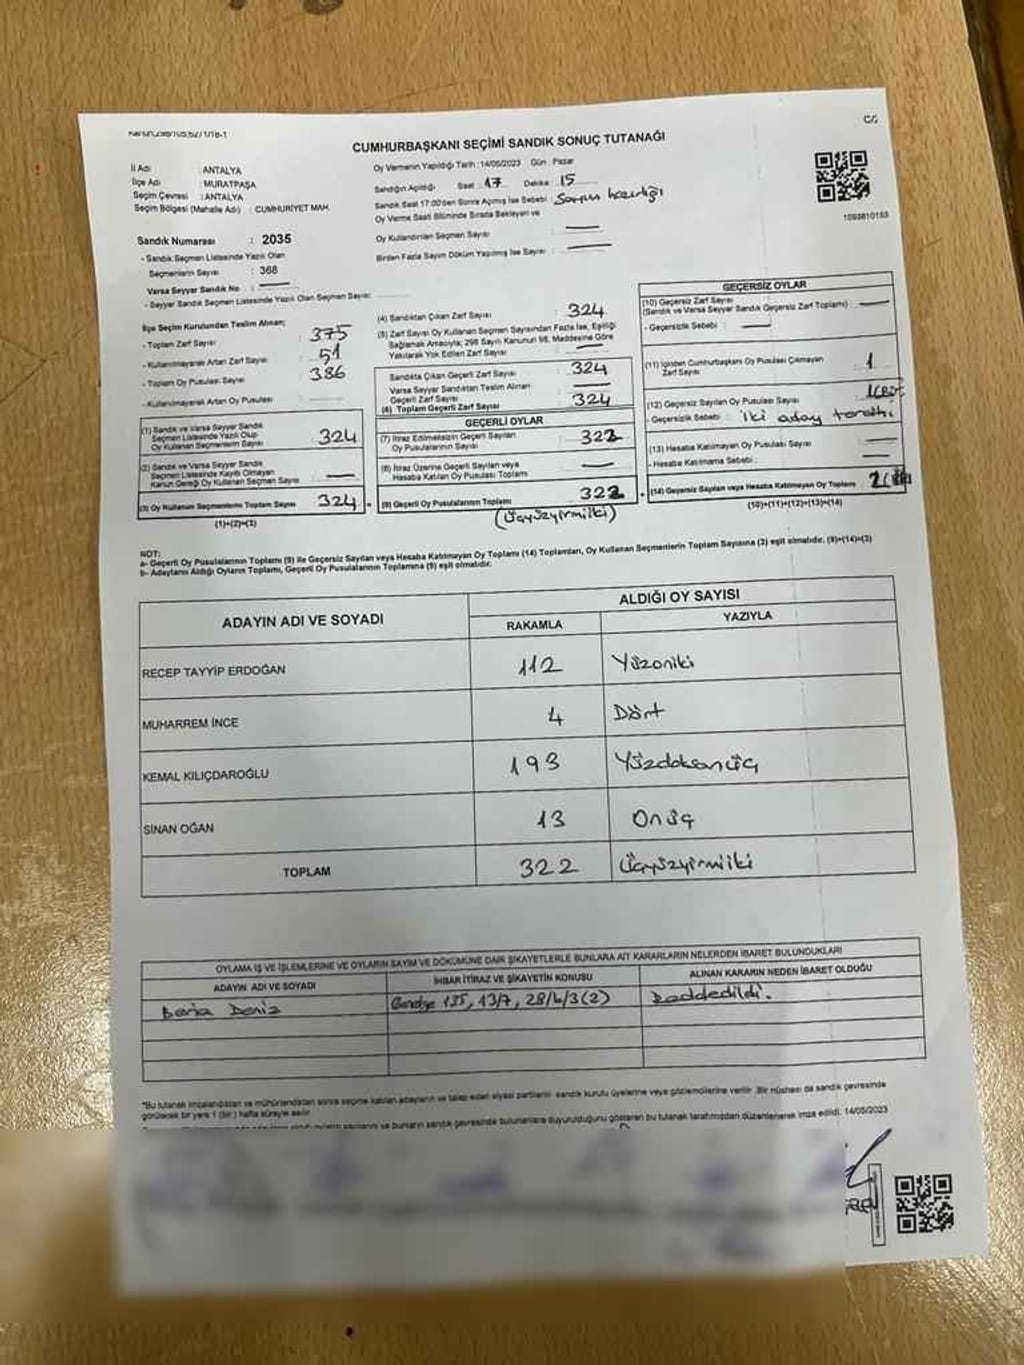 CUMHURBAŞKANI SEÇİMİ SANDIK SONUÇ TUTANAĞI
İl Adı : ANTALYA
İlçe Adı : MURATPAŞA
Seçim Çevresi : ANTALYA
Seçim Bölgesi (Mahalle Adı) : CUMHURİYET MAH.
Oy Vermenin Yapıldığı Tarih : 14/05/2023 Gün : Pazar
Sandığın Açıldığı Saat : 17 Dakika : 15
Sandık Saat 17:00'den Sonra Açılmış İse Sebebi : Sayım hazırlığı
Oy Verme Saati Bitiminde Sırada Bekleyen ve
Oy Kullandırılan Seçmen Sayısı :
Birden Fazla Sayım Döküm Yapılmış İse Sayısı :
1093810153
Sandık Numarası : 2035
- Sandık Seçmen Listesinde Yazılı Olan
Seçmenlerin Sayısı : 368
Varsa Seyyar Sandık No :
- Seyyar Sandık Seçmen Listesinde Yazılı Olan Seçmen Sayısı:
İlçe Seçim Kurulundan Teslim Alınan;
- Toplam Zarf Sayısı : 375
- Kullanılmayarak Artan Zarf Sayısı : 51
- Toplam Oy Pusulası Sayısı : 386
- Kullanılmayarak Artan Oy Pusulası :
(1) Sandık ve Varsa Seyyar Sandık
Seçmen Listesinde Yazılı Olup
Oy Kullanan Seçmenlerin Sayısı 324
(2) Sandık ve Varsa Seyyar Sandık
Seçmen Listesinde Kayıtlı Olmayan
Kanun Gereği Oy Kullanan Seçmen Sayısı
(3) Oy Kullanan Seçmenlerin Toplam Sayısı 324
(1)+(2)=(3)
(4) Sandıktan Çıkan Zarf Sayısı : 324
(5) Zarf Sayısı Oy Kullanan Seçmen Sayısından Fazla İse, Eşitliği
Sağlamak Amacıyla; 298 Sayılı Kanunun 98. Maddesine Göre
Yakılarak Yok Edilen Zarf Sayısı :
Sandıkta Çıkan Geçerli Zarf Sayısı : 324
Varsa Seyyar Sandıktan Teslim Alınan
Geçerli Zarf Sayısı :
(6) Toplam Geçerli Zarf Sayısı : 324
GEÇERLİ OYLAR
(7) İtiraz Edilmeksizin Geçerli Sayılan
Oy Pusulalarının Sayısı : 322
(8) İtiraz Üzerine Geçerli Sayılan veya
Hesaba Katılan Oy Pusulası Toplamı :
(9) Geçerli Oy Pusulalarının Toplamı : 322
(Üçyüzyirmiiki)
GEÇERSİZ OYLAR
(10) Geçersiz Zarf Sayısı
(Sandık ve Varsa Seyyar Sandık Geçersiz Zarf Toplamı) :
- Geçersizlik Sebebi :
(11) İçinden Cumhurbaşkanı Oy Pusulası Çıkmayan
Zarf Sayısı : 1
(12) Geçersiz Sayılan Oy Pusulası Sayısı :
- Geçersizlik Sebebi : iki aday tercihi
(13) Hesaba Katılmayan Oy Pusulası Sayısı :
- Hesaba Katılmama Sebebi :
(14) Geçersiz Sayılan veya Hesaba Katılmayan Oy Toplamı : 2
(10)+(11)+(12)+(13)=(14)
NOT:
a- Geçerli Oy Pusulalarının Toplamı (9) ile Geçersiz Sayılan veya Hesaba Katılmayan Oy Toplamı (14) Toplamları, Oy Kullanan Seçmenlerin Toplam Sayısına (3) eşit olmalıdır. (9)+(14)=(3)
b- Adayların Aldığı Oyların Toplamı, Geçerli Oy Pusulalarının Toplamına (9) eşit olmalıdır.
ADAYIN ADI VE SOYADI ALDIĞI OY SAYISI
RAKAMLA YAZIYLA
RECEP TAYYİP ERDOĞAN 112 Yüzoniki
MUHARREM İNCE 4 Dört
KEMAL KILIÇDAROĞLU 193 Yüzdoksanüç
SİNAN OĞAN 13 Onüç
TOPLAM 322 Üçyüzyirmiiki
OYLAMA İŞ VE İŞLEMLERİNE VE OYLARIN SAYIM VE DÖKÜMÜNE DAİR ŞİKAYETLERLE BUNLARA AİT KARARLARIN NELERDEN İBARET BULUNDUKLARI
ADAYIN ADI VE SOYADI İHBAR İTİRAZ VE ŞİKAYETİN KONUSU ALINAN KARARIN NEDEN İBARET OLDUĞU
Deniz Genelge 135, 13/7, 28/b/3(2) Reddedildi.
"Bu tutanak imzalandıktan ve mühürlendikten sonra seçime katılan adayların ve talep eden siyasi partilerin sandık kurulu üyelerine veya gözlemcilerine verilir. Bir nüshası da sandık çevresinde
görülecek bir yere 1 (bir) hafta süreyle asılır.
bunların sandık çevresinde bulunanlara duyurulduğunu gösteren bu tutanak tarafımızdan düzenlenerek imza edildi. 14/05/2023